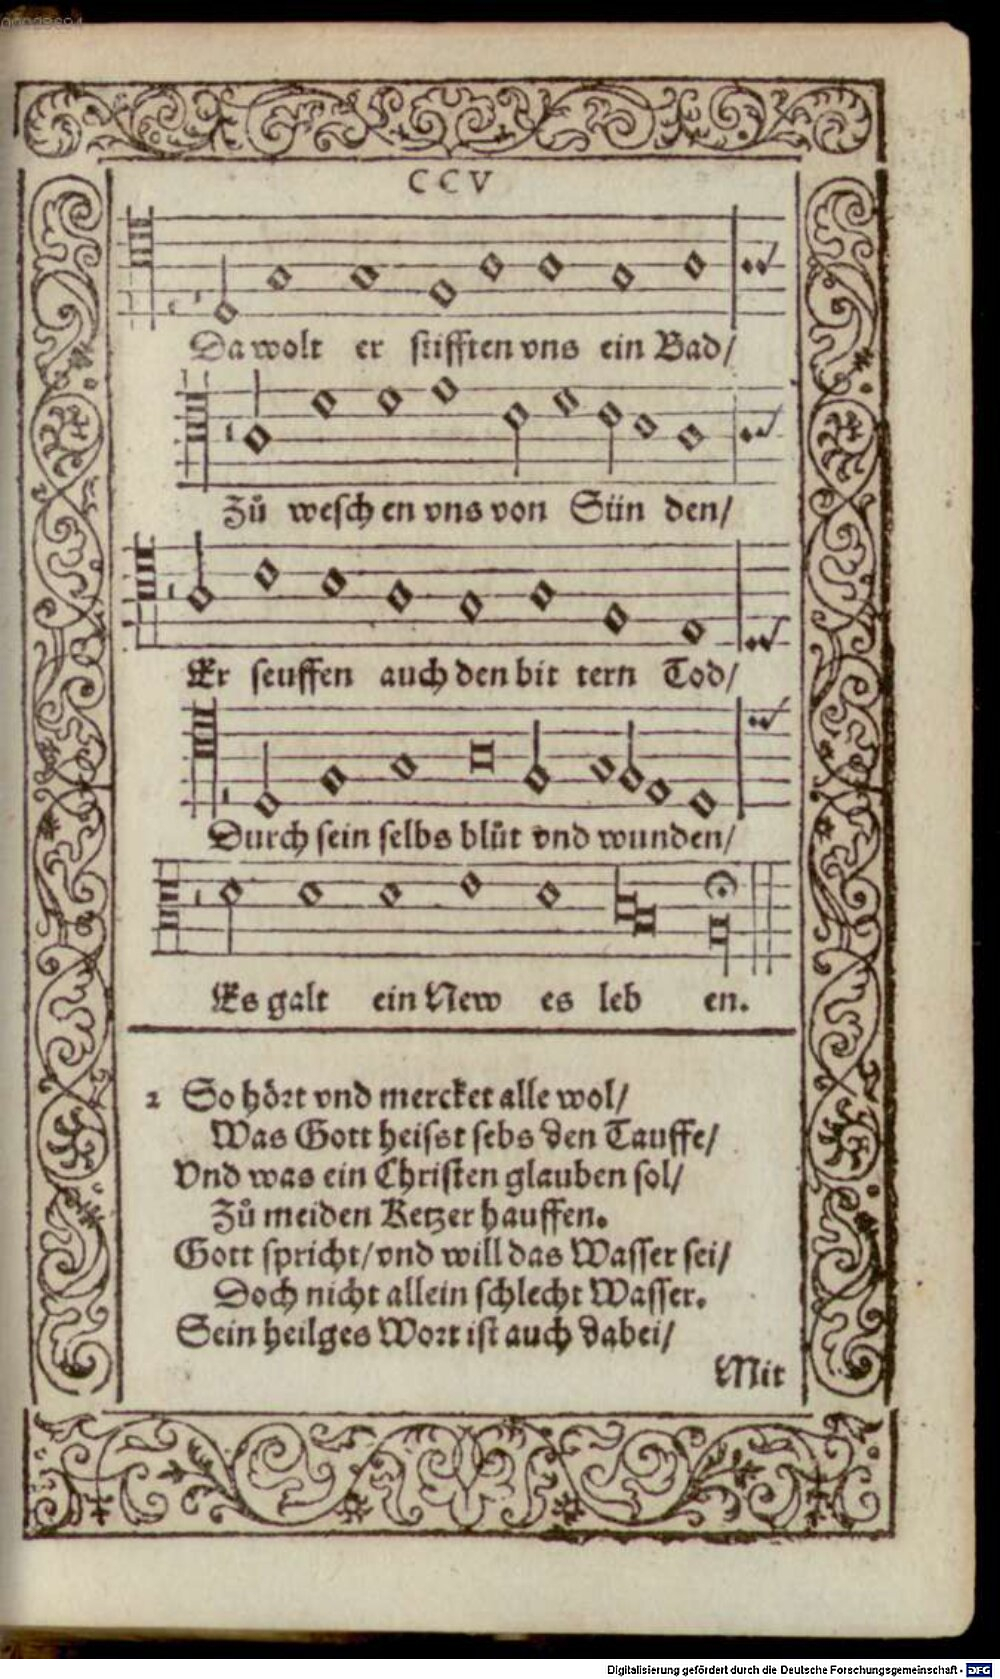 00025694
CCV
Da wolt er stifften vns ein Bad/
Zů weschen vns von Sünden/
Er seuffen auch den bittern Tod/
Durch sein selbs blůt vnd wunden/
Es galt ein Newes leben.
2 So hört vnd mercket alle wol/
Was Gott heisst sebs den Tauffe/
Vnd was ein Christen glauben sol/
Zů meiden Ketzer hauffen.
Gott spricht/vnd will das Wasser sei/
Doch nicht allein schlecht Wasser.
Sein heilges Wort ist auch dabei/
Mit
Digitalisierung gefördert durch die Deutsche Forschungsgemeinschaft - DFG